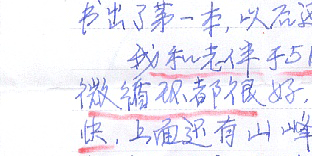 书出了第一本，以后还
我和老伴于51
微循环都很好，
快，上面还有山峰